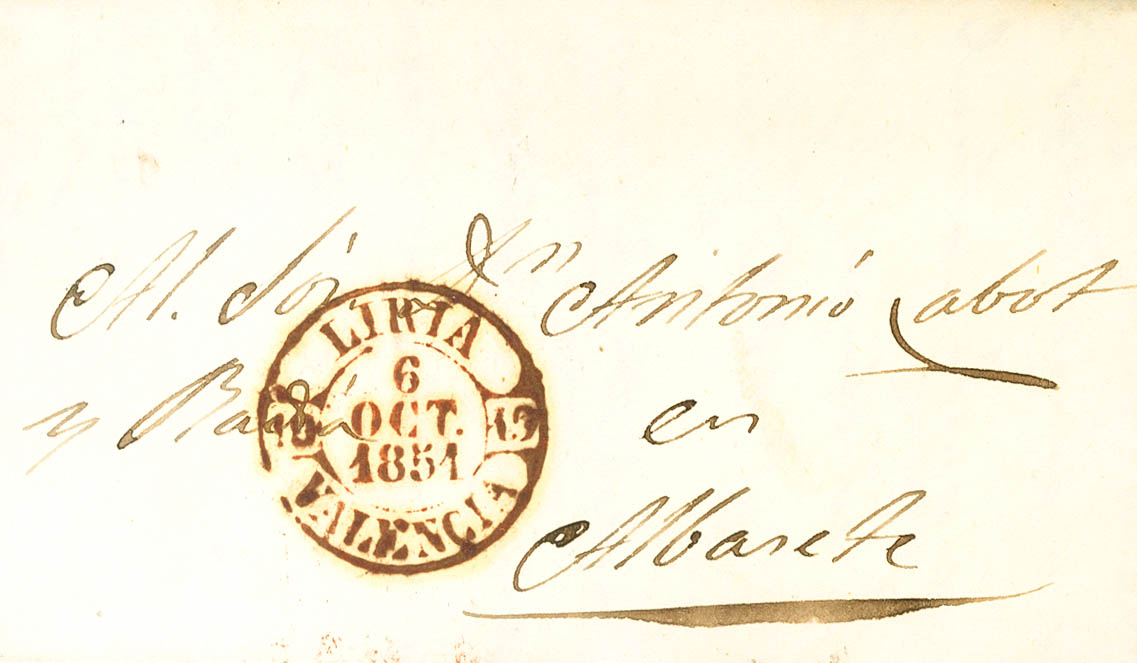 Al. Sór. Dn Antonió Labot
y Badiá en
Albasete
LIRIA
6
OCT.
1851
VALENCIA